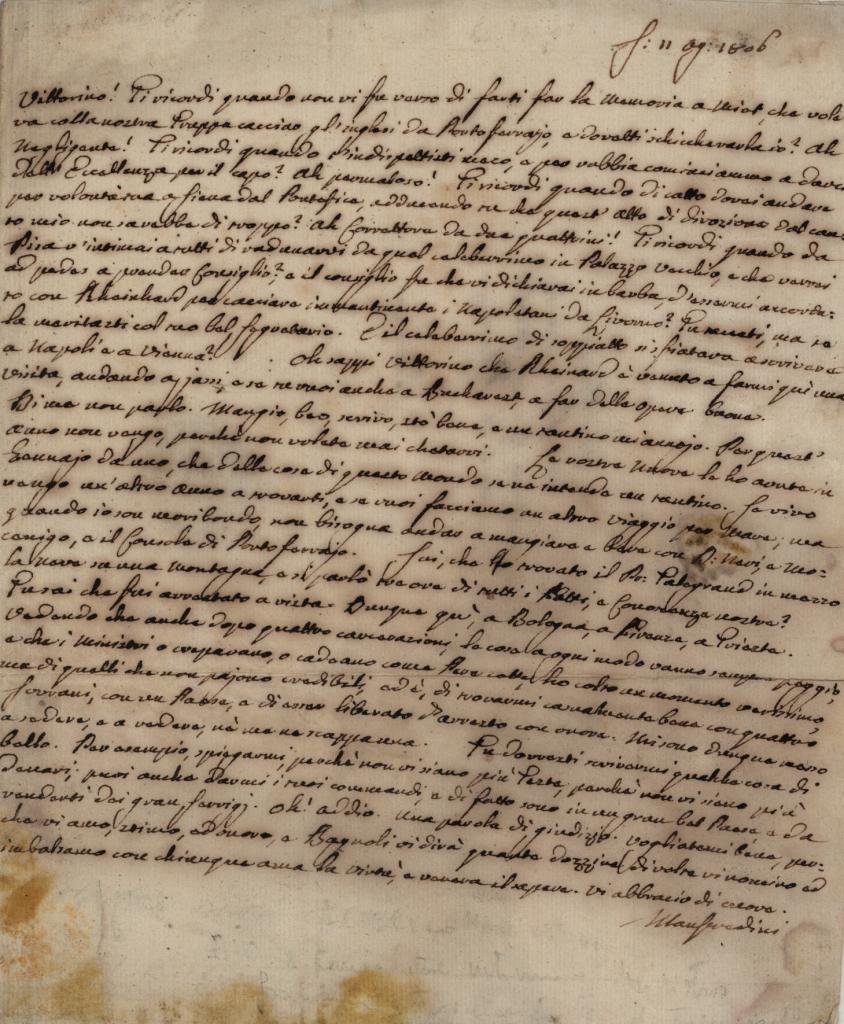 F: 11 ag: 1806
Vittorino! Ti ricordi quando non vi fu verso di farti far la Memoria a Miot, che vole
va colla nostra Truppa cacciar gl'Inglesi da Portoferrajo, e dovetti schiccherarla io? Ah
Negligente! Ti ricordi quando t'indispettisti meco, e per rabbia cominciammo a darci
dell'Eccellenza per il capo? Ah permaloso! Ti ricordi quando di catto dovei andare
per volontà tua a Siena dal Pontefice, adducendo tu che quest'atto di divozione dal can-
to mio non sarebbe di troppo? Ah Correttore da due quattrini! Ti ricordi quando da
Pisa v'intimai a tutti di radunarvi da quel celeberrimo in Palazzo Vecchio, e che verrei
ad pedes a prender Consiglio? e il consiglio fu che vi dichiarai in barba, d'essermi accorda:
to con Rheinhard per cacciare immantinente i Napoletani da Livorno? Tu
la meritasti col tuo bel Segretario. E il celeberrimo di soppiatto si sfiatava a scrivere
a Napoli e a Vienna? Oh sappi Vittorino che Rheinard è venuto a farmi quì una
visita, andando a Jassi, e se tu vuoi anche a Bucharest, a far delle opere buone.
Di me non parlo. Mangio, beo, scrivo, stò bene, e un tantino mi annojo. Per quest'
anno non vengo, perchè non volete mai chetarvi. Le vostre nuove le ho avute in
Gennajo da uno, che delle cose di questo Mondo se ne intende un tantino. Se vivo
vengo un'altro anno a trovarti, e se vuoi facciamo un altro viaggio per Mare; ma
quando io son moribondo, non bisogna andar a mangiare e bere con D: Neri, e Mo-
cenigo, e il Console di Porto ferrajo. Sai, che ho trovato il Pr: Talegrand in mezzo
la neve su una montagna, e si parlò tre ore di tutti i Fatti, e Conoscenze nostre?
Tu sai che fui arrestato a vista. Dunque quì, a Bologna, a Firenze, a Trieste.
Vedendo che anche dopo quattro carcerazioni, le cose a ogni modo vanno sempre peggio,
e che i Ministri o crepavano, o cadeano come Pere cotte, ho colto un momento verissimo,
ma di quelli che non pajono credibili, ed è, di trovarmi casualmente bene con quattro
Sovrani, con un Paese, e di esser liberato d'arresto con onore. Mi sono dunque messo
a sedere, e a vedere, nè me ne scappa una. Tu dovresti scrivermi qualche cosa di
bello. Per esempio, spiegarmi, perchè non vi siano più Teste, perchè non vi siano più
denari; puoi anche darmi i tuoi commandi, e di fatto sono in un gran bel Paese e da
renderti dei gran servigj. Oh! addio. Una parola di giudizio. Vogliatemi bene, per-
che vi amo, stimo, ed onoro, e Bagnoli vi dirà quante dozzine di volte vi nomino ed
imbalsamo con chiunque ama la virtù, e venera il sapere. Vi abbracio di cuore.
Manfredini